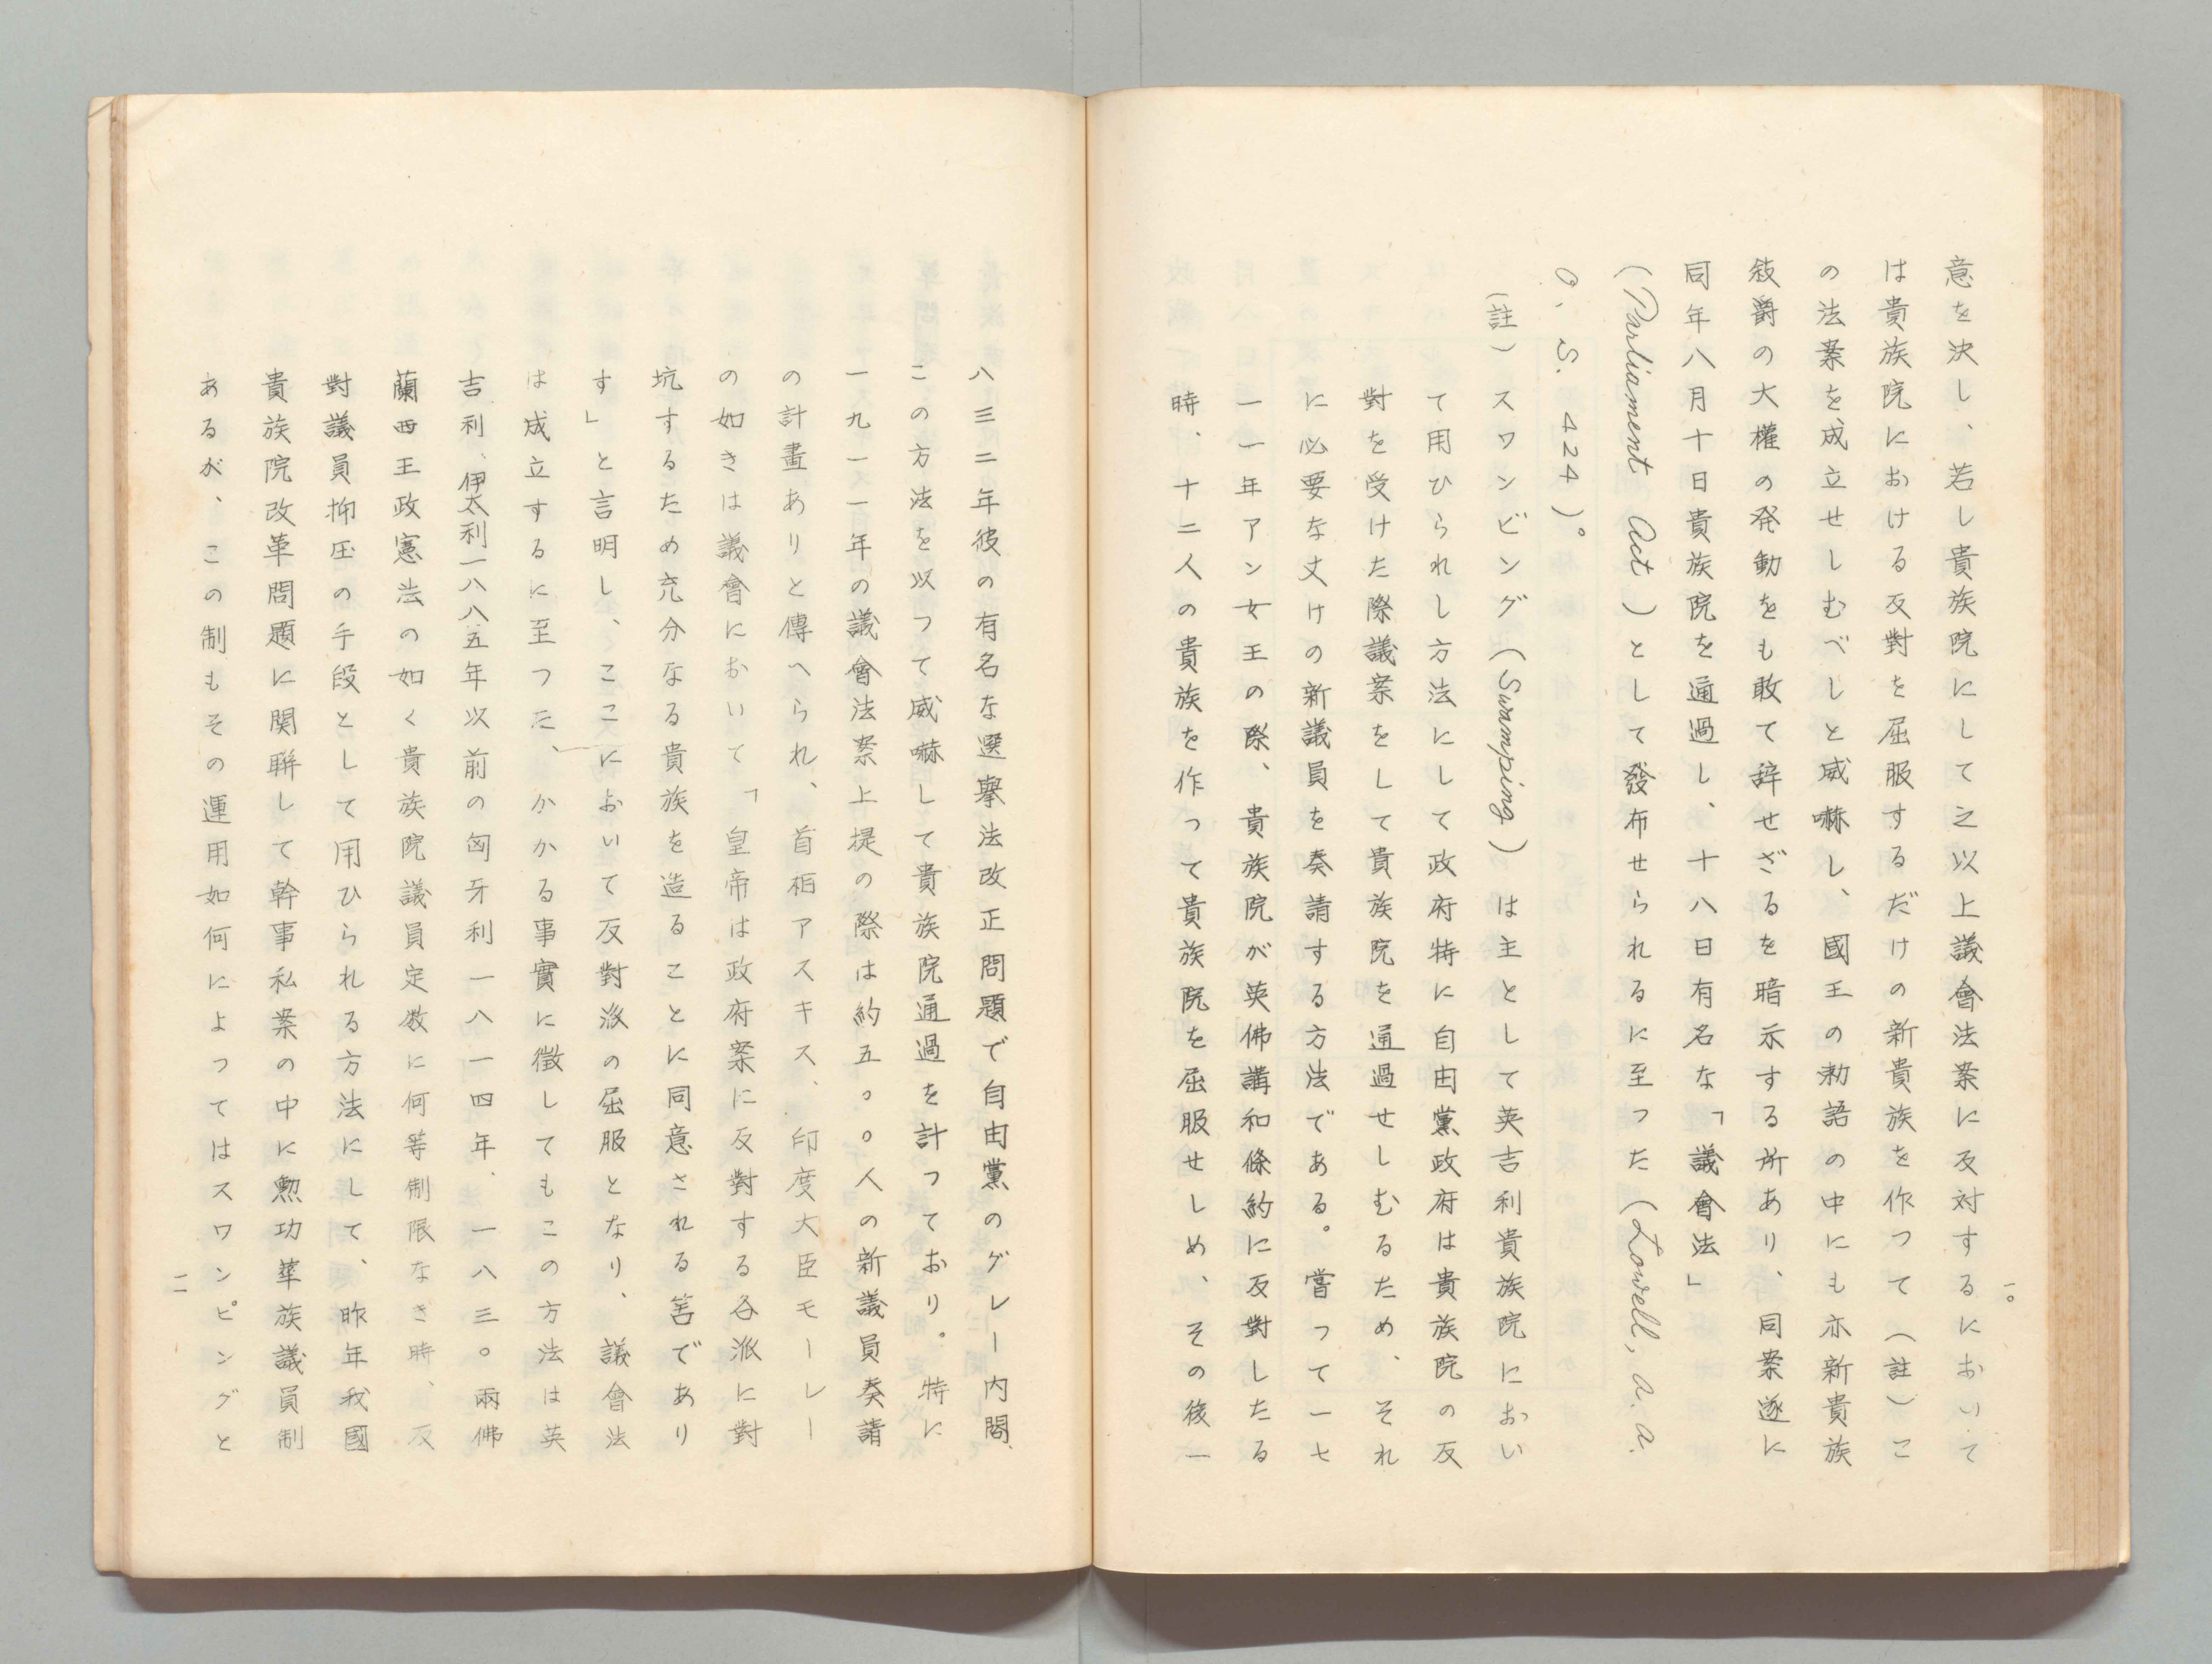 一〇
意を決し、若し貴族院にして之以上議會法案に反対するにおいて
は貴族院における反對を屈服するだけの新貴族を作つて（註）こ
の法案を成立せしむべしと威嚇し、國王の勅語の中にも亦新貴族
敍爵の大權の発動をも敢て辞せざるを暗示する所あり、同案遂に
同年八月十日貴族院を通過し、十八日有名な「議會法」
（Parliament Act）として發布せられるに至つた（Lowell, a. a.
O. S. 424）。
（註）スワンピング（Swamping）は主として英吉利貴族院におい
て用ひられし方法にして政府特に自由黨政府は貴族院の反
對を受けた際議案をして貴族院を通過せしむるため、それ
に必要な丈けの新議員を奏請する方法である。嘗つて一七
一一年アン女王の際、貴族院が英佛講和條約に反對したる
時、十二人の貴族を作つて貴族院を屈服せしめ、その後一
八三二年彼の有名な選擧法改正問題で自由黨のグレー内閣、
この方法を以つて威嚇して貴族院通過を計つており。特に
一九一一年の議會法案上提の際は約五〇〇人の新議員奏請
の計畫ありと傳へられ、首相アスキス、印度大臣モーレー
の如きは議會において「皇帝は政府案に反對する各派に對
坑するため充分なる貴族を造ることに同意される筈であり
す」と言明し、ここにおいて反對派の屈服となり、議會法
は成立するに至つた、かかる事實に徴してもこの方法は英
吉利、伊太利一八八五年以前の匈牙利一八一四年、一八三〇兩佛
蘭西王政憲法の如く貴族院議員定数に何等制限なき時、反
對議員抑圧の手段として用ひられる方法にして、昨年我國
貴族院改革問題に関聯して幹事私案の中に勲功華族議員制
あるが、この制もその運用如何によつてはスワンピングと
一一